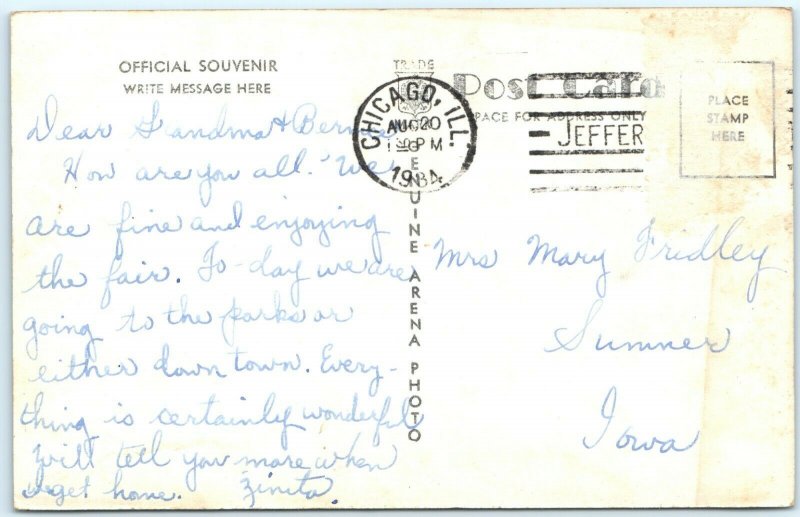 OFFICIAL SOUVENIR
WRITE MESSAGE HERE
Dear Grandma & Bernice
How are you all. We
are fine and enjoying
the fair. To-day we are
going to the parks or
either down town. Every-
thing is certainly wonderful
Will tell you more when
we get home. Zinita.
TRADE
GENUINE ARENA PHOTO
Post Card
SPACE FOR ADDRESS ONLY
CHICAGO, ILL.
AUG 20
PM
1934
JEFFER
PLACE
STAMP
HERE
Mrs Mary Fridley
Sumner
Iowa